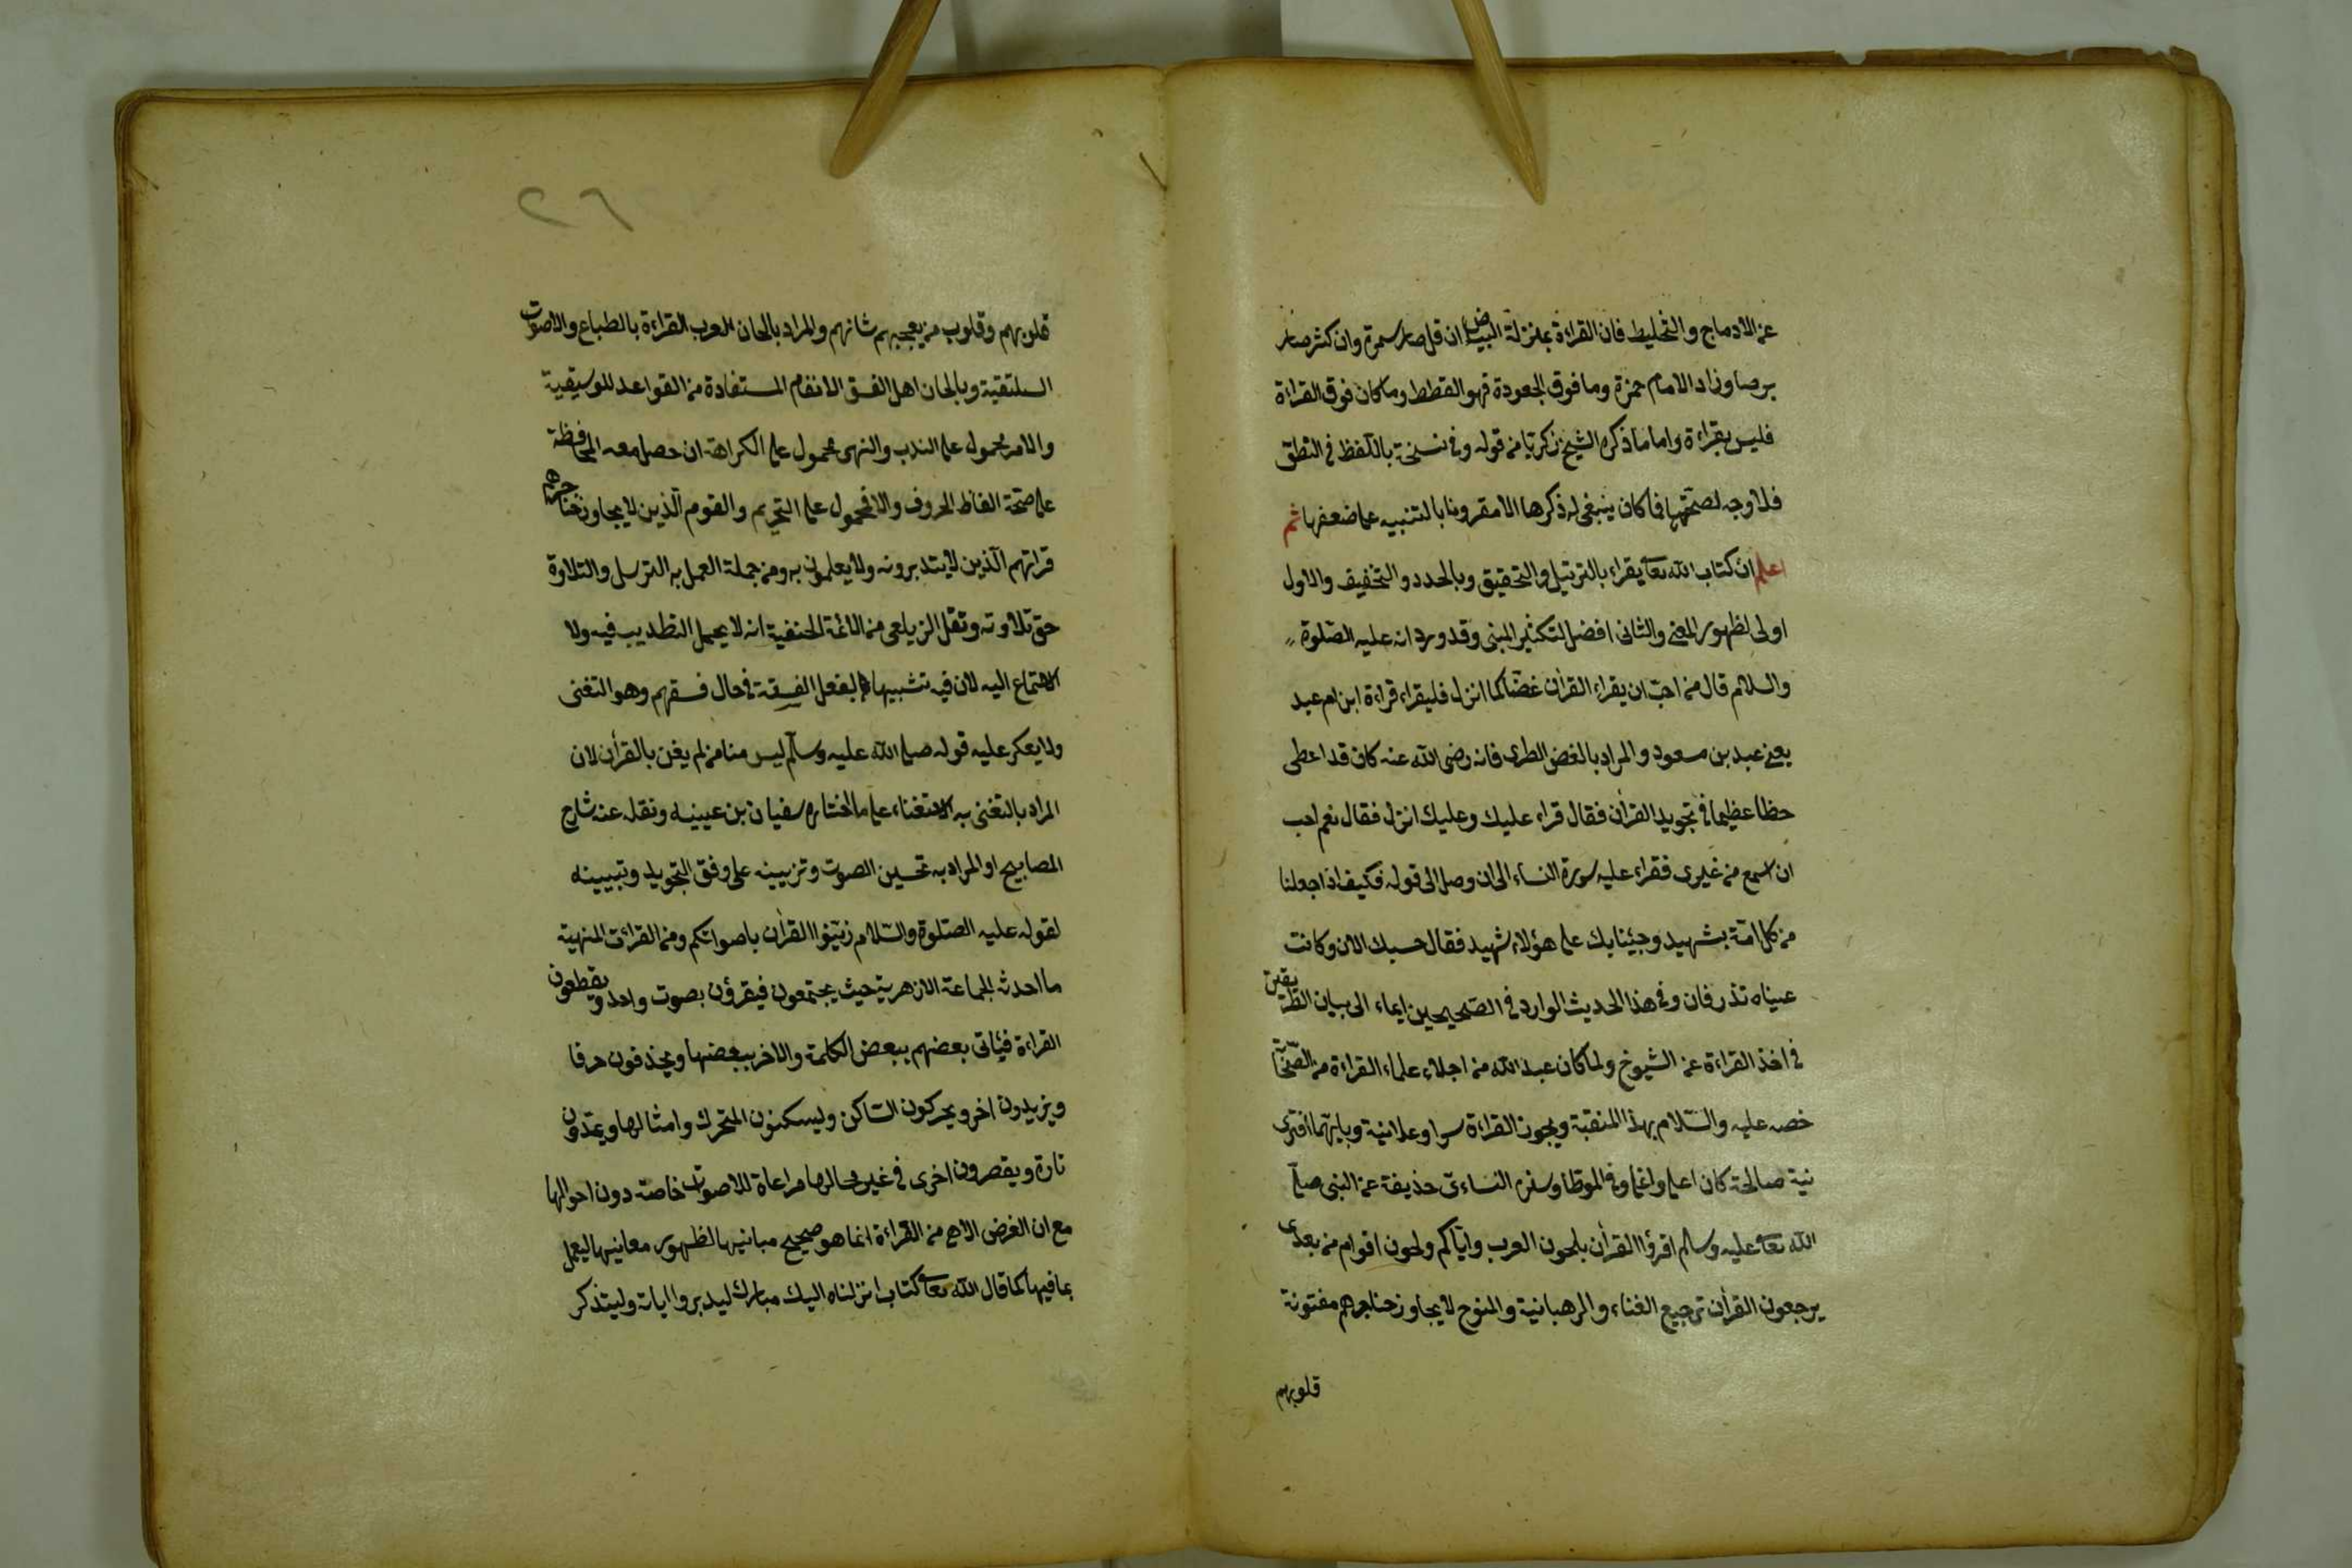 عن الادماج والتخليط فان القراءة بمنزلة البياض ان قل صار سمرة وان كثر صار
برصا وزاد الامام حمزة وما فوق الجعودة فهو القطط وما كان فوق القراءة
فليس بقراءة واما ما ذكره الشيخ زكريا من قوله وفي نسخة باللفظ في النطق
فلا وجه لصحتها فما كان ينبغي له ذكرها الا مقرونا بالتنبيه على ضعفها ثم
اعلم ان كتاب الله تعا يقراء بالترتيل والتحقيق وبالحدد والتخفيف والاول
اولى لظهور المعنى والثانى افضل لتكثير المبنى وقد ورد انه عليه الصلوة
والسلام قال من احب ان يقراء القرأن غضا كما انزل فليقراء قراءة ابن ام عبد
يعنى عبد بن مسعود والمراد بالغض الطرى فانه رضى الله عنه كان قد اعطى
حظا عظيما فى تجويد القرأن فقال قراء عليك وعليك انزل فقال نعم احب
ان اسمع من غيرى فقراء عليه سورة النساء الى ان وصل الى قوله فكيف اذا جعلنا
من كل امة بشهيد وجئنا بك على هؤلاء شهيد فقال حسبك الان وكانت
عيناه تذرفان وفى هذا الحديث الوارد فى الصحيحين ايماء الى بيان الطريقين
فى اخذ القراءة عن الشيوخ ولما كان عبد الله من اجلاء علماء القراءة من الصحابة
خصه عليه والسلام بهذا المنقبة ويجوز القراءة سرا وعلانية وبايتهما اقترى
نية صالحة كان اعلى واغلى وفى الموطا وسنن النساءى حذيفة عن النبى صلى
الله تعا عليه وسلم اقرؤا القرأن بلحون العرب واياكم ولحون اقوام من بعدى
يرجعون القرأن ترجيع الغناء والرهبانية والنوح لا يجاوز حناجرهم مفتونة
قلوبهم
٢٦
قلوبهم وقلوب من يعجبهم شانهم والمراد بالحان العرب القراءة بالطباع والاصوات
السلتقية وبالحان اهل الفسق الانغام المستفادة من القواعد الموسيقية
والامر محمول على الندب والنهى محمول على الكراهة ان حصل معه المحافظة
على صحة الفاظ الحروف والا فمحمول على التحريم والقوم الذين لا يجاوز حناجرهم
قراتهم الذين لا يتدبرونه ولا يعلمون به ومن جملة العمل به الترسل والتلاوة
حق تلاوته ونقل الزيلعى من الائمة الحنفية انه لا يحل التطديب فيه ولا
الاستماع اليه لان فيه تشبيها بفعل الفسقة فى حال فسقهم وهو التغنى
ولا يعكر عليه قوله صلى الله عليه وسلم ليس منا من لم يغن بالقرأن لان
المراد بالتغنى به الاستغناء على ما اختاره سفيان بن عيينه ونقله عنه شارح
المصابيح او المراد به تحسين الصوت وتزيينه على وفق التجويد وتبيينه
لقوله عليه الصلوة والسلام زينوا القرأن باصواتكم ومن القراءت المنهية
ما احدثه الجماعة الازهرية حيث يجتمعون فيقرؤن بصوت واحد ويقطعون
القراءة فيأتى بعضهم ببعض الكلمة والاخر ببعضها ويحذفون حرفا
ويزيدون اخر ويحركون الساكن وليسكنون المتحرك وامثالها ويمدون
تارة ويقصرون اخرى فى غير محالها مراعاة للاصوات خاصة دون احوالها
مع ان الغرض الاهم من القراءة انما هو صحيح مبانيها لظهور معانيها ليعمل
بما فيها كما قال الله تعا كتاب انزلناه اليك مبارك ليدبروا اياته وليتذكر